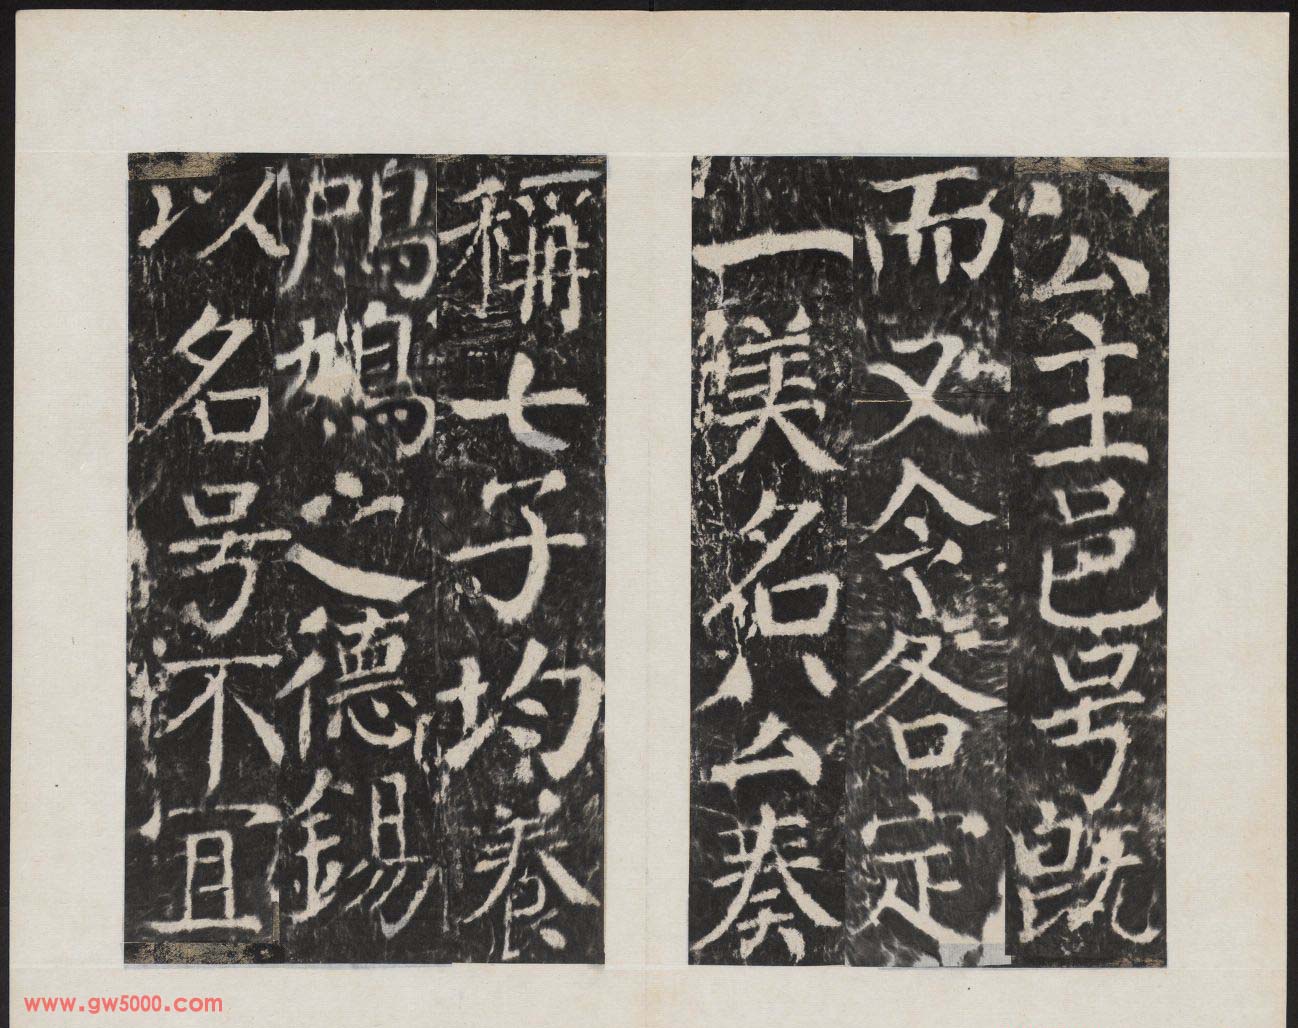 公主邑号既
而又令各定
一美名公奏
稱七子均養
鳲鳩之德錫
以名号不宜
www.gw5000.com